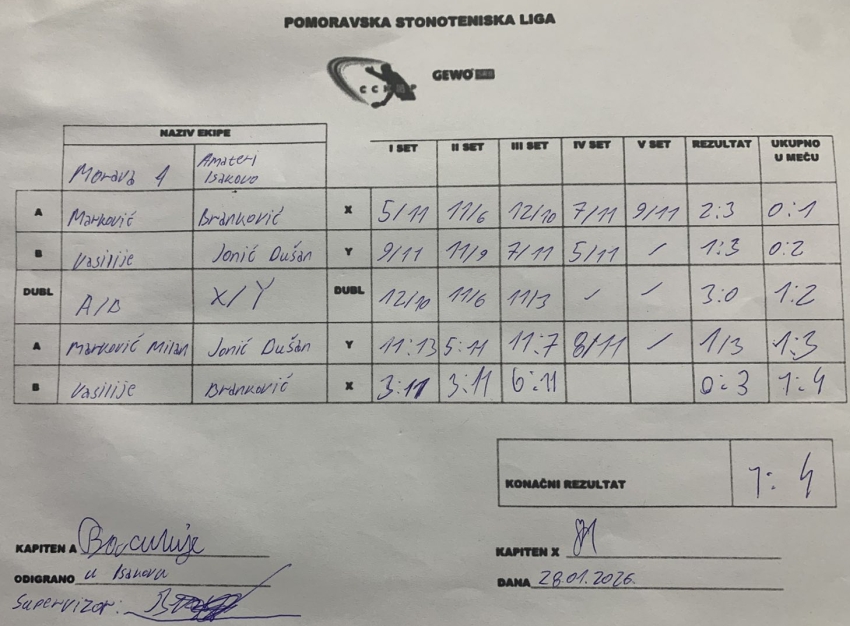 POMORAVSKA STONOTENISKA LIGA
GEWO
NAZIV EKIPE I SET II SET III SET IV SET V SET REZULTAT UKUPNO U MEČU
Morava 1 Amateri Isakovo
A Marković Branković X 5/11 11/6 12/10 7/11 9/11 2:3 0:1
B Vasilije Jonić Dušan Y 9/11 11/9 7/11 5/11 / 1:3 0:2
DUBL A/B X/Y DUBL 12/10 11/6 11/3 / / 3:0 1:2
A Marković Milan Jonić Dušan Y 11:13 5:11 11:7 8/11 / 1/3 1:3
B Vasilije Branković X 3:11 3:11 6:11 0:3 1:4
KONAČNI REZULTAT 1:4
KAPITEN A
KAPITEN X
ODIGRANO u Isakovu
DANA 28.01.2026.
Supervizor: